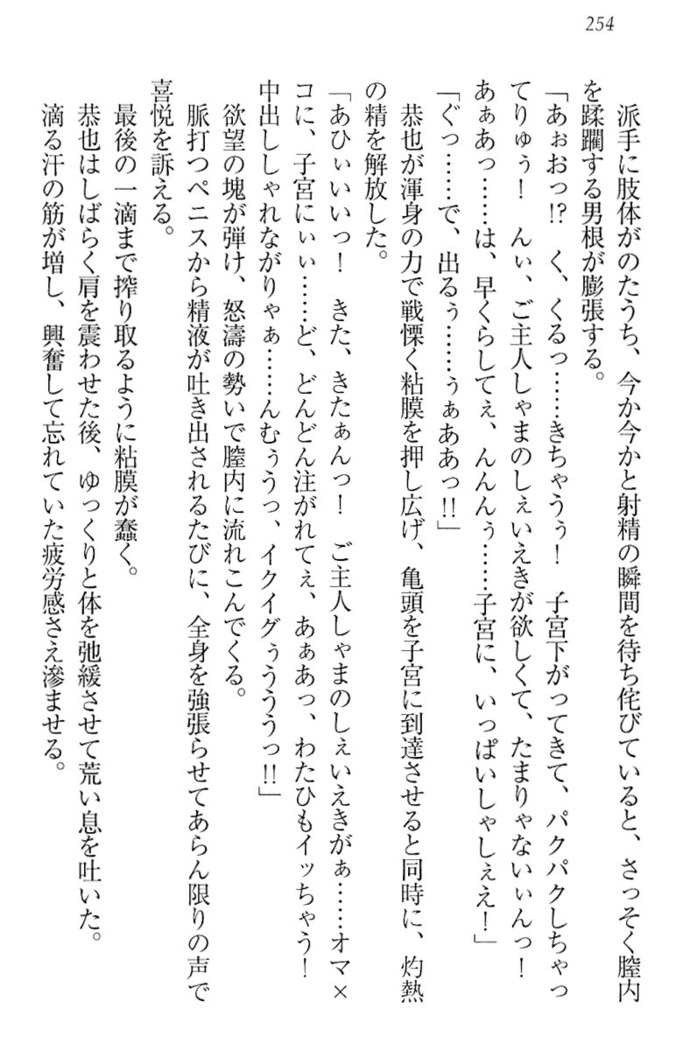 254
派手に肢体がのたうち、今か今かと射精の瞬間を待ち侘びていると、さっそく膣内
を蹂躙する男根が膨張する。
「あぉおっ!?　く、くるっ……きちゃうぅ！　子宮下がってきて、パクパクしちゃっ
てりゅぅ！　んぃ、ご主人しゃまのしぇいえきが欲しくて、たまりゃないぃんっ！
あぁあっ……は、早くらしてぇ、んんんぅ……子宮に、いっぱいしゃしぇえ！」
「ぐっ……で、出るぅ……ぅぁああっ!!」
恭也が渾身の力で戦慄く粘膜を押し広げ、亀頭を子宮に到達させると同時に、灼熱
の精を解放した。
「あひぃいいっ！　きた、きたぁんっ！　ご主人しゃまのしぇいえきがぁ……オマ×
コに、子宮にぃぃ……ど、どんどん注がれてぇ、あぁあっ、わたひもイッちゃう！
中出ししゃれながりゃぁ……んむぅうっ、イクイグぅうううっ!!」
欲望の塊が弾け、怒濤の勢いで膣内に流れこんでくる。
脈打つペニスから精液が吐き出されるたびに、全身を強張らせてあらん限りの声で
喜悦を訴える。
最後の一滴まで搾り取るように粘膜が蠢く。
恭也はしばらく肩を震わせた後、ゆっくりと体を弛緩させて荒い息を吐いた。
滴る汗の筋が増し、興奮して忘れていた疲労感さえ滲ませる。